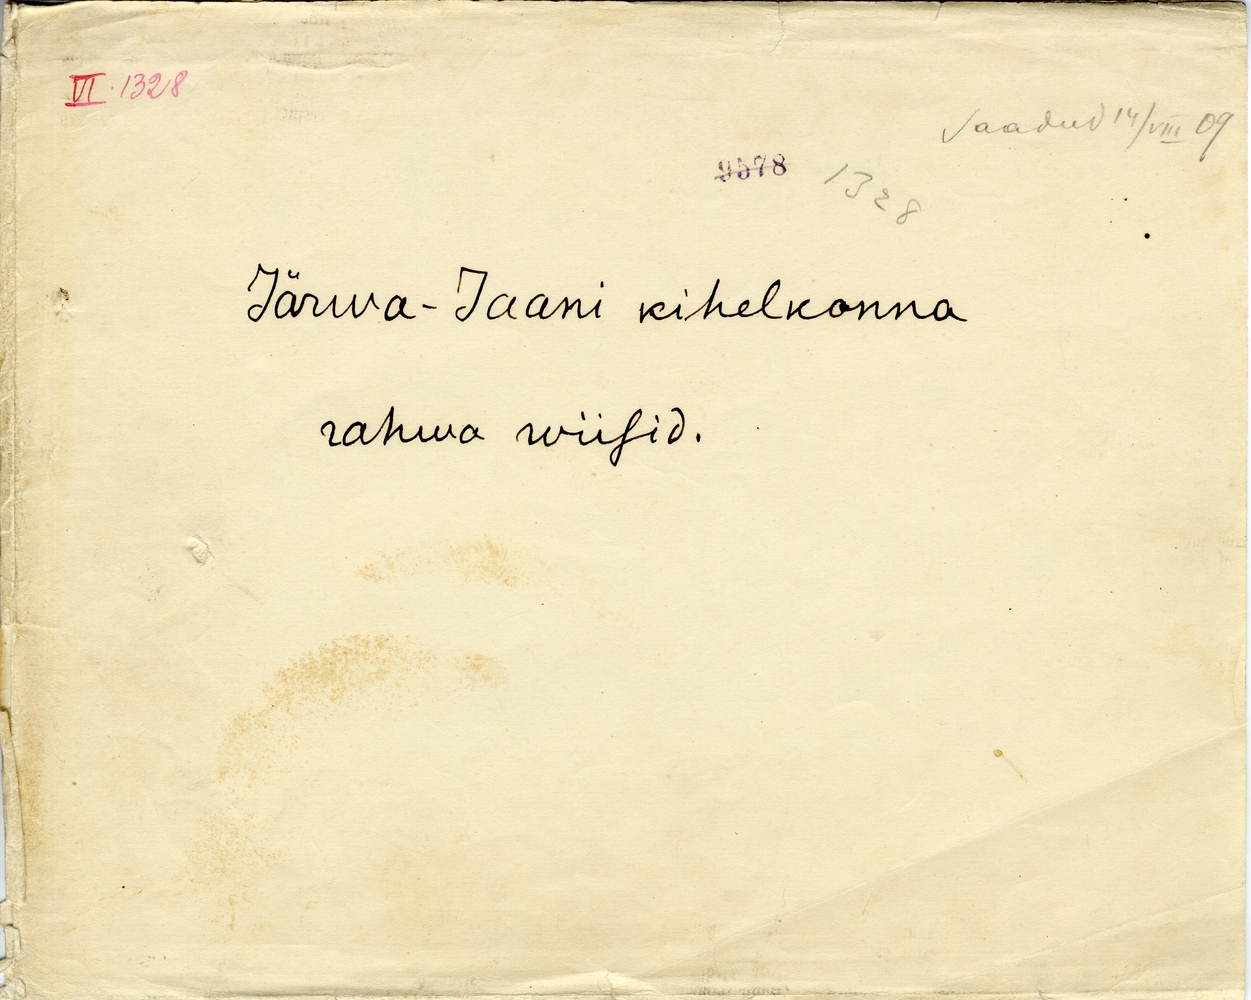 VI. 1328
Saadud 14/VIII 09
9578 1328
Järwa-Jaani kihelkonna
rahwa wiisid.